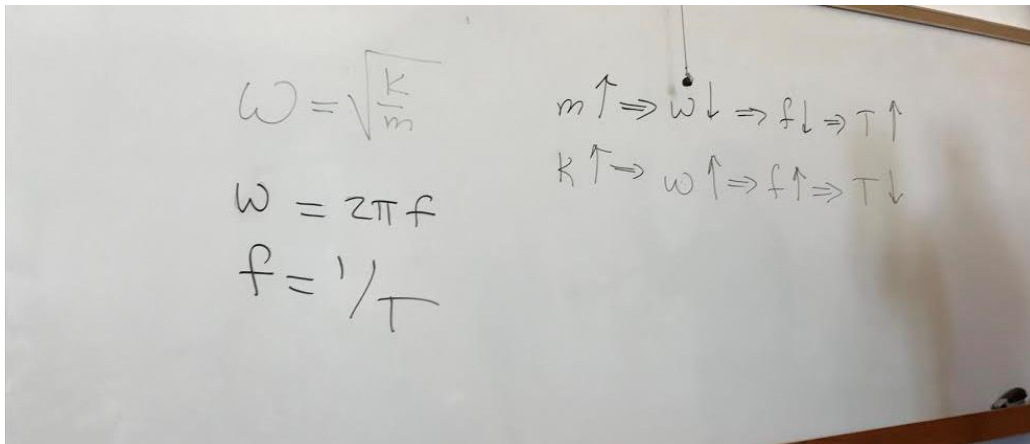 ω = √k/m
ω = 2π f
f = 1/T
m ↑ ⇒ ω ↓ ⇒ f ↓ ⇒ T ↑
k ↑ ⇒ ω ↑ ⇒ f ↑ ⇒ T ↓